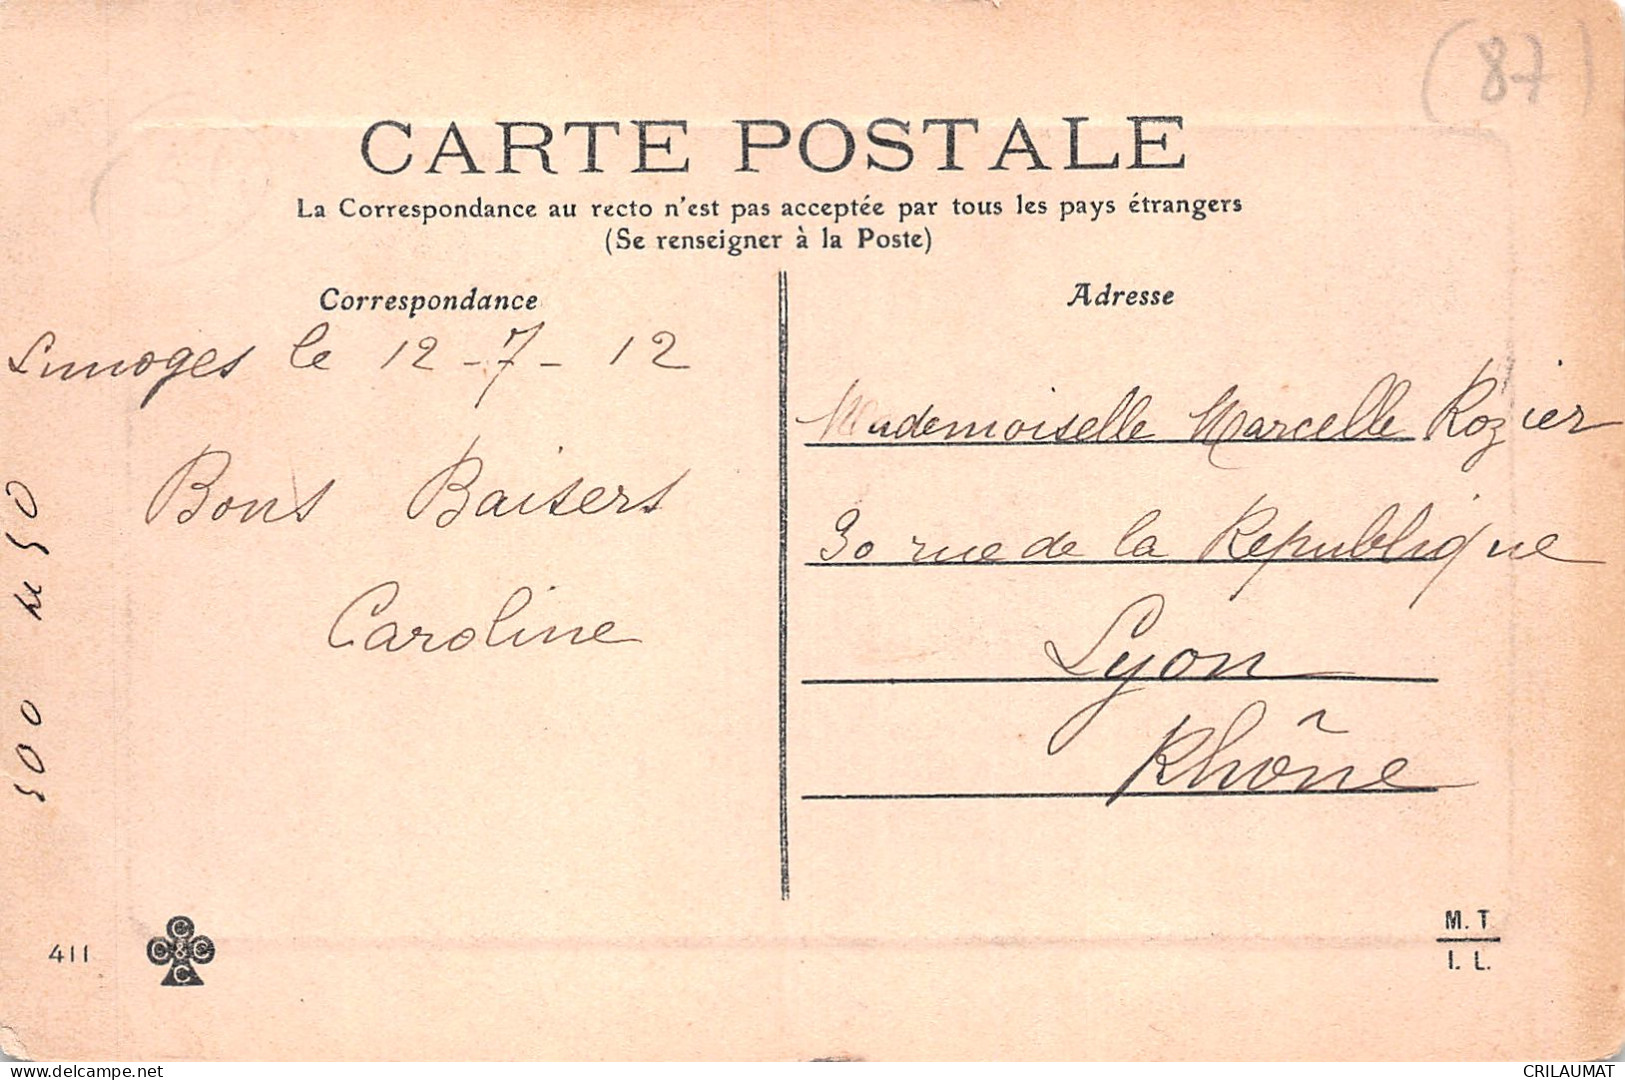 (87)
CARTE POSTALE
La Correspondance au recto n'est pas acceptée par tous les pays étrangers
(Se renseigner à la Poste)
Correspondance
Limoges le 12-7-12
Bons Baisers
Caroline
Adresse
Mademoiselle Marcelle Rozier
30 rue de la Republique
Lyon
Rhône
411
C C & C C
M. T
I. L.
CRILAUMAT